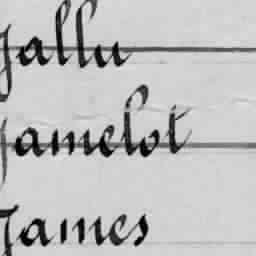 Jallu
Jamelot
James